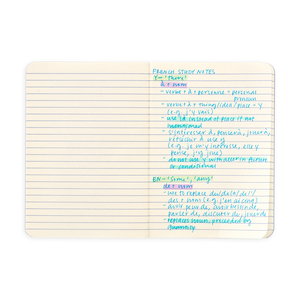 FRENCH STUDY NOTES
Y - 'there'
à + nom
- verbe + à + personne = personal
pronoun
- verbe + à + thing/idea/place = y
(e.g. j'y vais)
- use là instead of place if not
mentioned
- s'intéresser à, penser à, jouer à,
réfléchir à use y
(e.g. je m'y intéresse, elle y
pense, j'y joue)
- do not use y with aller in future
or conditional
EN - 'some', 'any'
de + nom
- use to replace du/de la/de l'/
des + nom (e.g. j'en ai cent)
- avoir peur de, avoir besoin de,
parler de, discuter de, jouer de
- replaces noun, preceded by
quantity